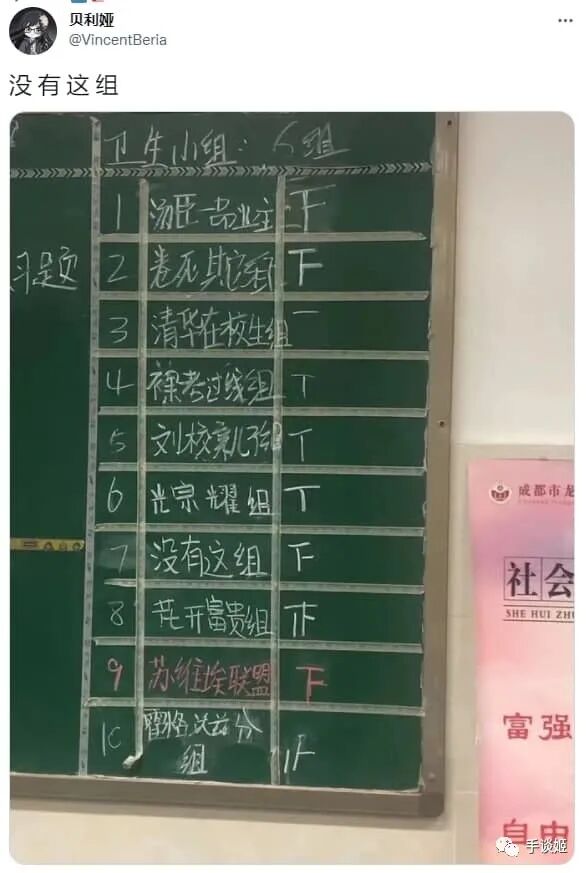 贝利娅
@VincentBeria
没有这组
卫生小组：
习题
1 汤臣一品业主
2 卷死其它组
3 清华在校生组
4 裸考过线组
5 刘校亲儿子组
6 光宗耀组
7 没有这组
8 花开富贵组
9 苏维埃联盟
10 霍格沃兹分组
成都市龙
社会
SHE HUI ZHU
富强
自由
手谈姬